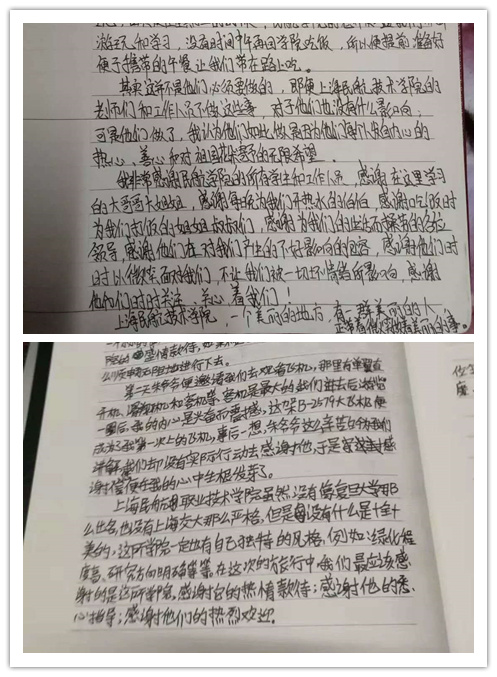 游玩和学习，没有时间中午再回学院吃饭，所以便提前准备好
便于携带的午餐让我们带在路上吃。
其实这并不是他们必须要做的，即便上海民航技术学院的
老师们和工作人员不做这些事，对于他们也没有什么影响，
可是他们做了，我认为他们如此做是因为他们每个人内心的
热心、善心和对祖国花朵的无限希望。
我非常感谢民航学院的所有学生和工作人员，感谢在这里学习
的大哥哥大姐姐，感谢每夜为我们开热水的伯伯，感谢吃饭时
为我们打饭的姐姐叔叔们，感谢为我们的生活而操劳的各位
领导，感谢他们在对我们产生的不好影响的时候，感谢他们时
时以微笑面对我们，不让我们被一切坏情绪所影响，感谢
他们时时关注、关心着我们！
上海民航技术学院，一个美丽的地方，有一群美丽的人，
正常着做美丽的事。
院的盛情款待，
第一天朱爷爷便邀请我们去观看飞机，那里有单翼直
升机、滑翔机和客机等，客机是最大的，我们进去后浏览
一圈后，我的内心是兴奋而震撼，这架B-2579大飞机便
成为了我第一次上的飞机，事后一想，朱爷爷这么辛苦的给我们
讲解，我们却没有实际行动去感谢他，于是
谢偿便在我的心中生根发芽了。
上海民航职业技术学院虽然没有像复旦大学那
么出名，也没有上海交大那么严格，但是没有什么是十全十
美的，这所学院一定也有自己独特的风格，例如：绿化程
度高、研究方向明确等等，在这次的旅行中我们最应该感
谢的是这所学院。感谢它的热情款待；感谢他的悉
心指导；感谢他们的热烈欢迎。